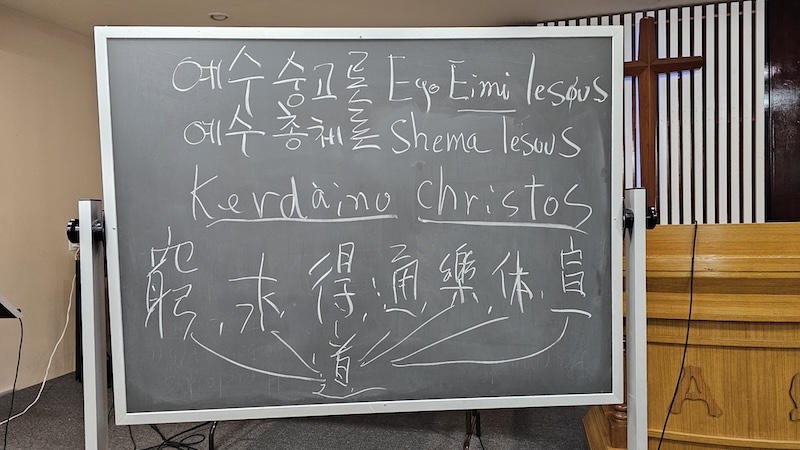 예수 숭고론 Ego Eimi Iesous
예수 총체론 Shema Iesous
Kerdaino Christos
窮, 求, 得, 通, 樂, 休, 宣
道
A